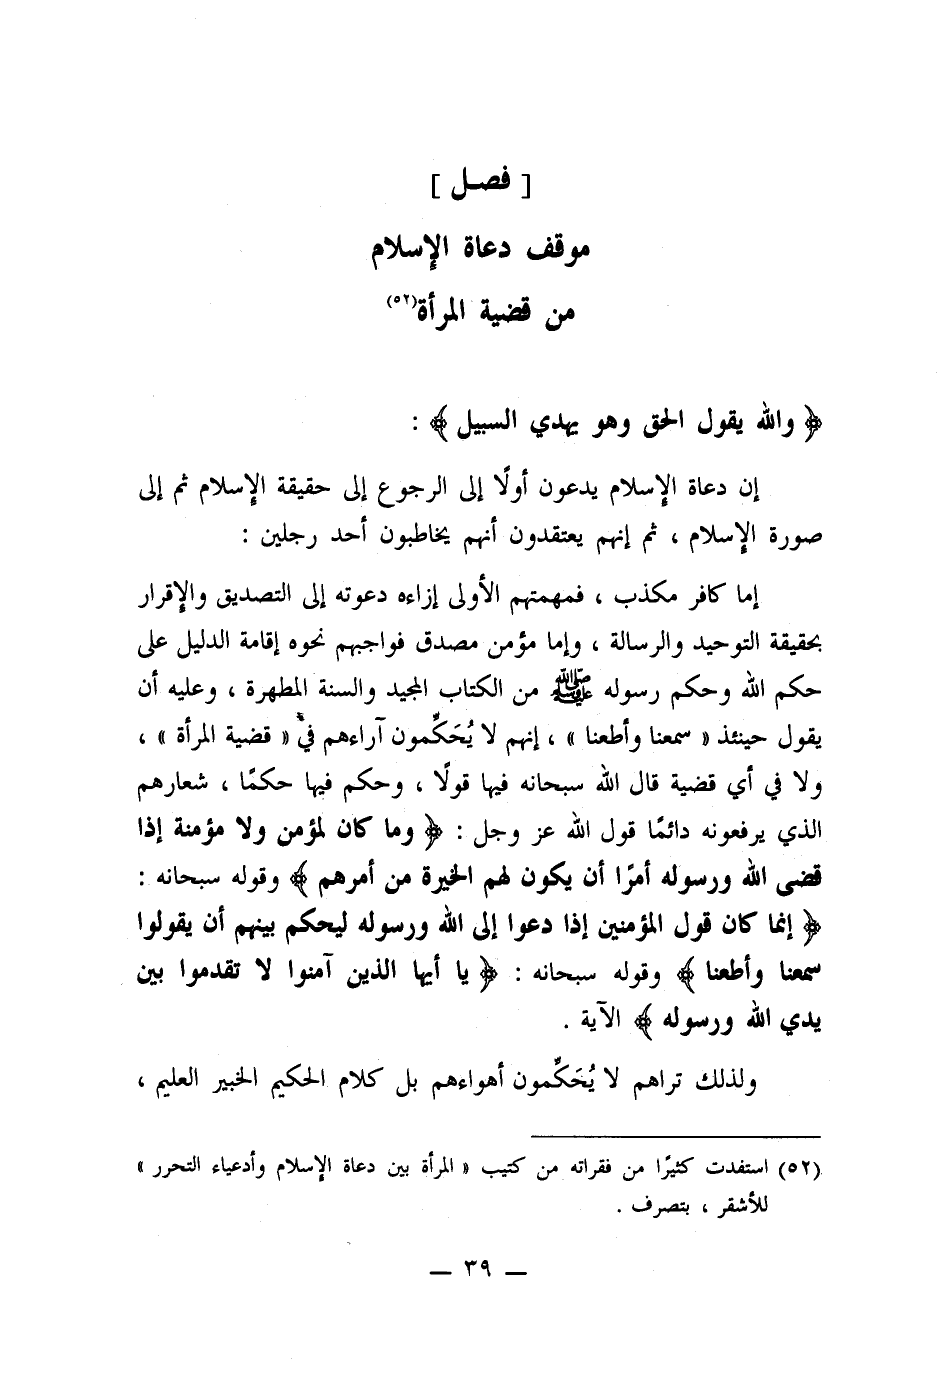 [ فصل ]
موقف دعاة الإسلام
من قضية المرأة(٥٢)
﴿ والله يقول الحق وهو يهدي السبيل ﴾ :
إن دعاة الإسلام يدعون أولًا إلى الرجوع إلى حقيقة الإسلام ثم إلى
صورة الإسلام ، ثم إنهم يعتقدون أنهم يخاطبون أحد رجلين :
إما كافر مكذب ، فمهمتهم الأولى إزاءه دعوته إلى التصديق والإقرار
بحقيقة التوحيد والرسالة ، وإما مؤمن مصدق فواجبهم نحوه إقامة الدليل على
حكم الله وحكم رسوله ﷺ من الكتاب المجيد والسنة المطهرة ، وعليه أن
يقول حينئذ « سمعنا وأطعنا » ، إنهم لا يُحَكِّمون آراءهم في « قضية المرأة » ،
ولا في أي قضية قال الله سبحانه فيها قولًا ، وحكم فيها حكمًا ، شعارهم
الذي يرفعونه دائمًا قول الله عز وجل : ﴿ وما كان لمؤمن ولا مؤمنة إذا
قضى الله ورسوله أمرًا أن يكون لهم الخيرة من أمرهم ﴾ وقوله سبحانه :
﴿ إنما كان قول المؤمنين إذا دعوا إلى الله ورسوله ليحكم بينهم أن يقولوا
سمعنا وأطعنا ﴾ وقوله سبحانه : ﴿ يا أيها الذين آمنوا لا تقدموا بين
يدي الله ورسوله ﴾ الآية .
ولذلك تراهم لا يُحَكِّمون أهواءهم بل كلام الحكيم الخبير العليم ،
(٥٢) استفدت كثيرًا من فقراته من كتيب « المرأة بين دعاة الإسلام وأدعياء التحرر »
للأشقر ، بتصرف .
— ٣٩ —